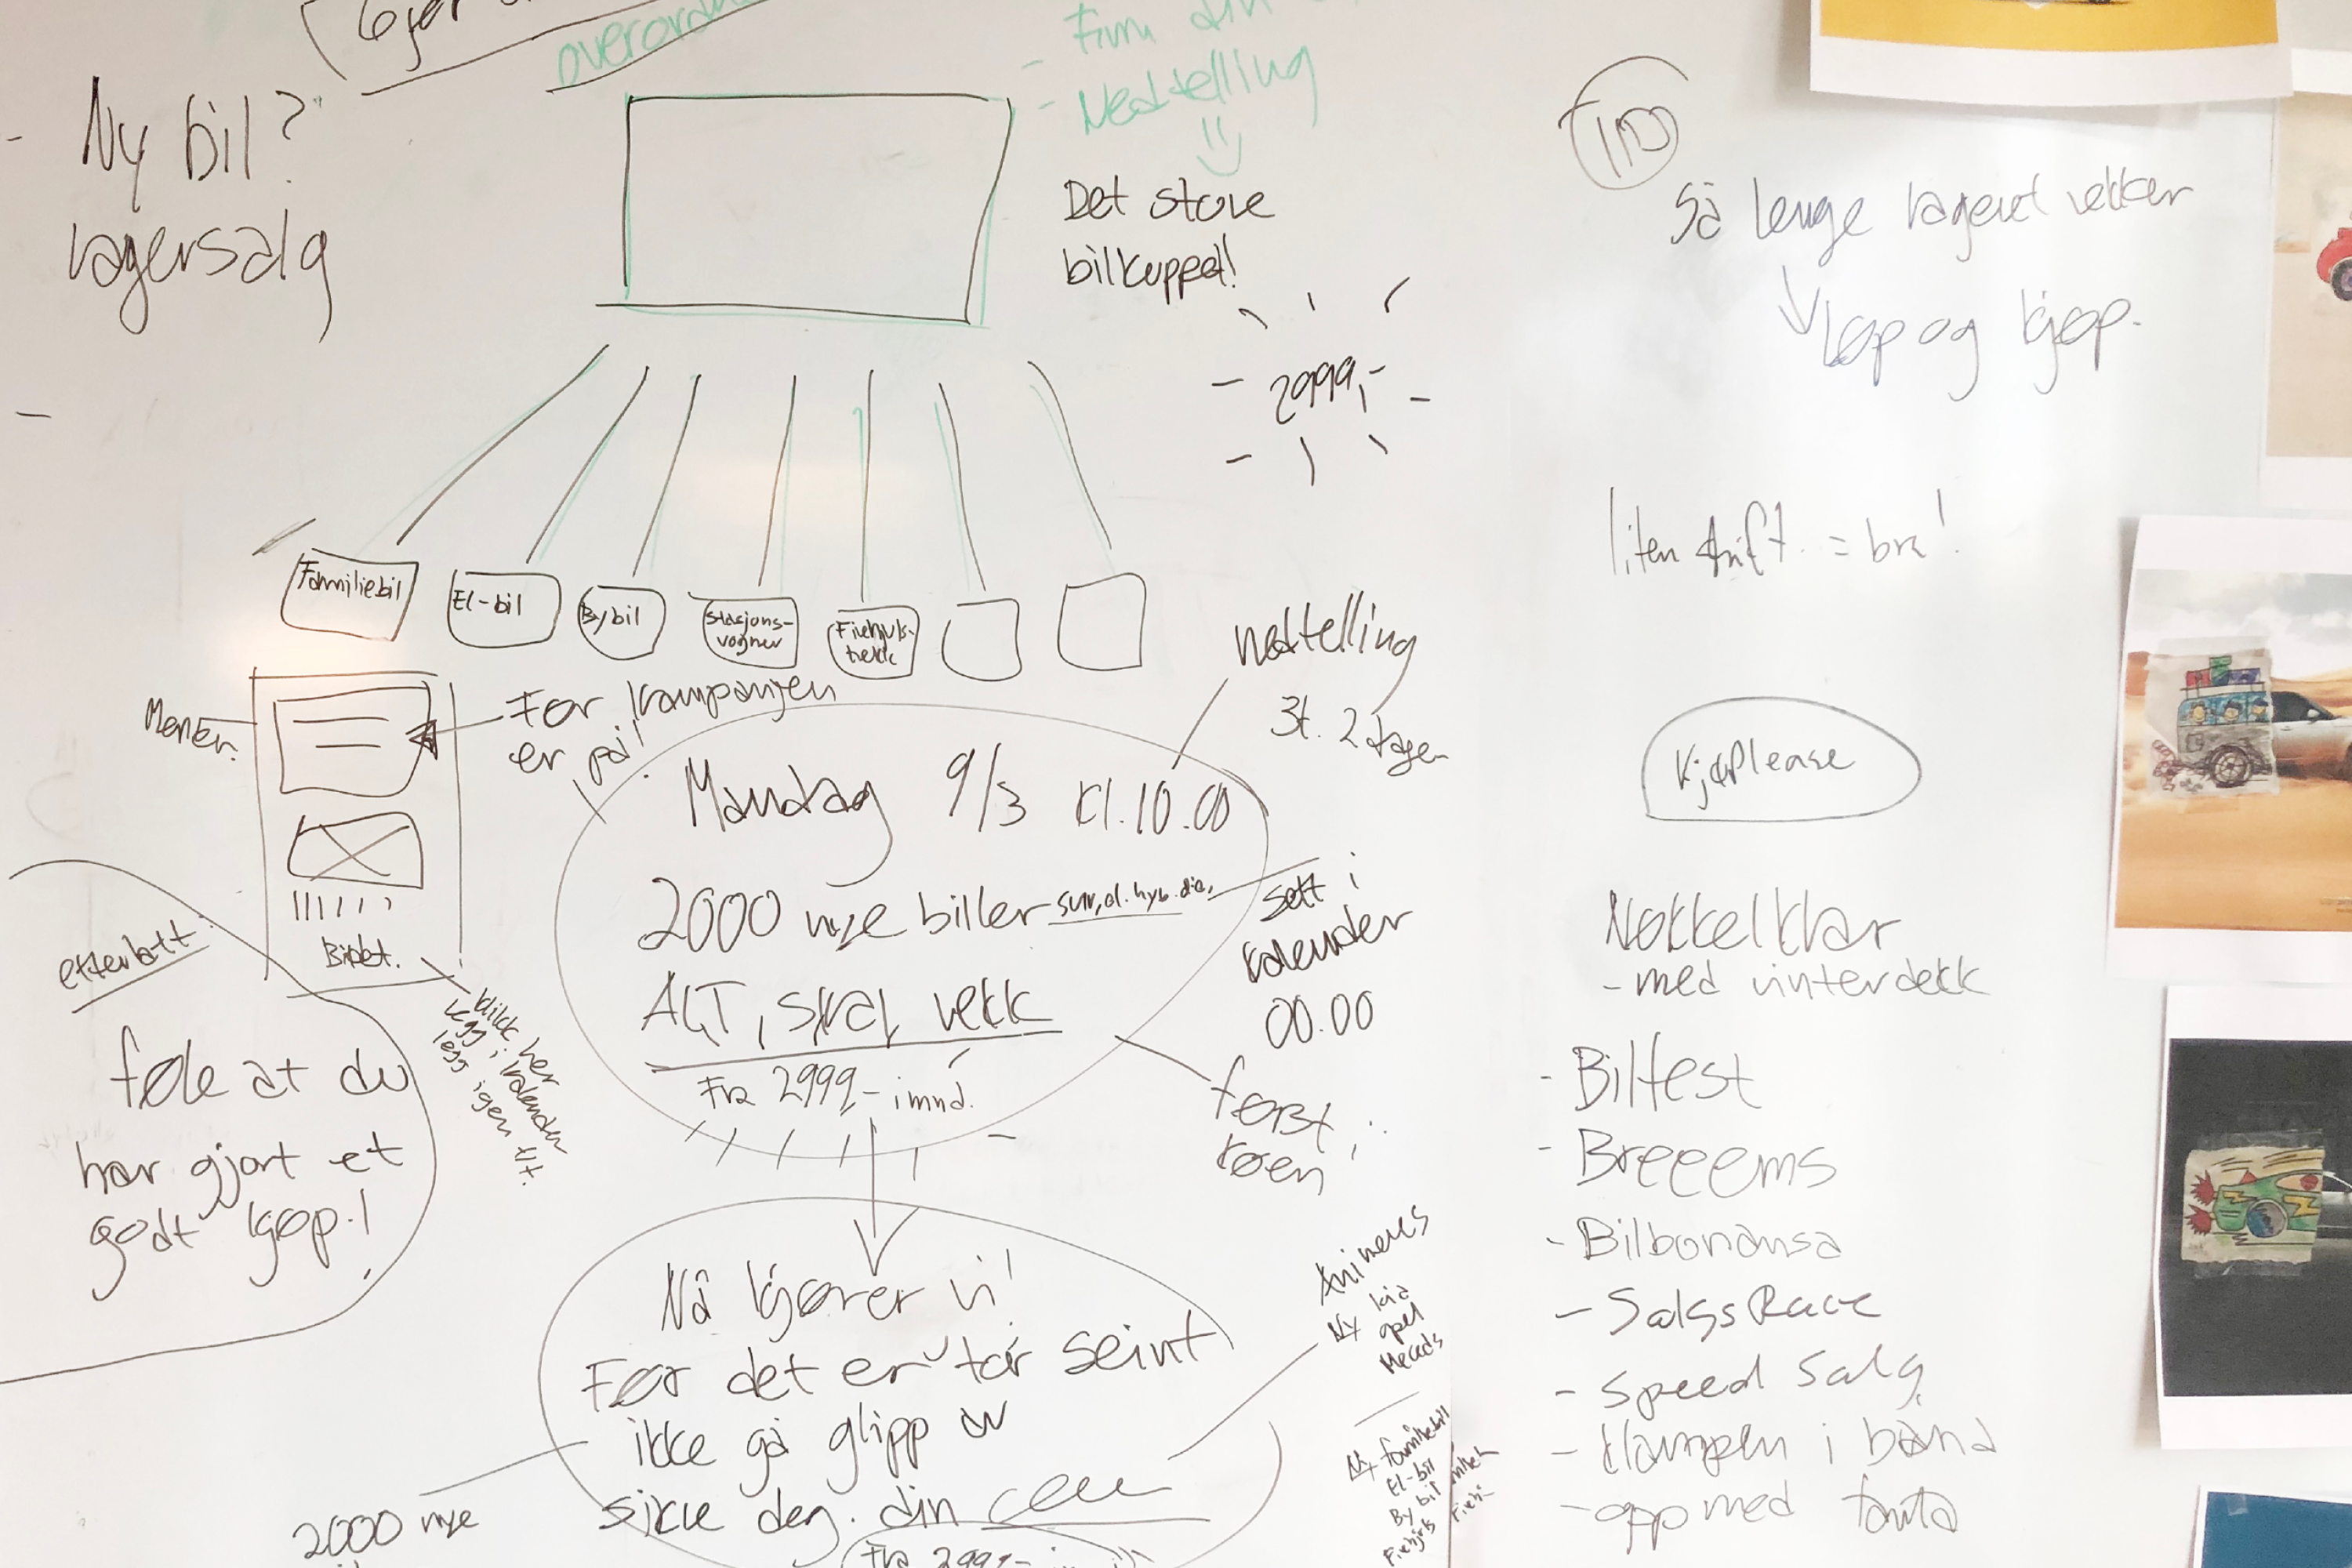 - Finn din
- Nedtelling
- Ny bil?
lagersalg
Det store
bilkuppet!
- 2999,- -
Familiebil
El-bil
By bil
Stasjons-
vogner
Firehjuls-
trekk
Før kampanjen
er på!
nedtelling
3t. 2 dager
Mandag 9/3 kl.10.00
2000 nye biller suv, el. hyb. die,
ALT, skal vekk
Fra 2999,- i mnd.
sett i
kalender
00.00
først i
køen
Bildet.
klikk her
legg i kalender
etterlatt
føle at du
har gjort et
godt kjøp!
Nå kjører vi!
Før det er før seint
ikke gå glipp av
sikre deg. din
Fra 2999,- i
2000 nye
Animeres
Ny kia
opel
Ny familiebil
El-bil
By bil
Så lenge lageret rekker
Løp og kjøp.
liten skrift. = bra!
KjøPlease
Nøkkelklar
- med vinterdekk
- Bilfest
- Breeems
- Bilbonansa
- SalgsRace
- Speed Salg
- Klampen i bånn
- gøpp med tomta